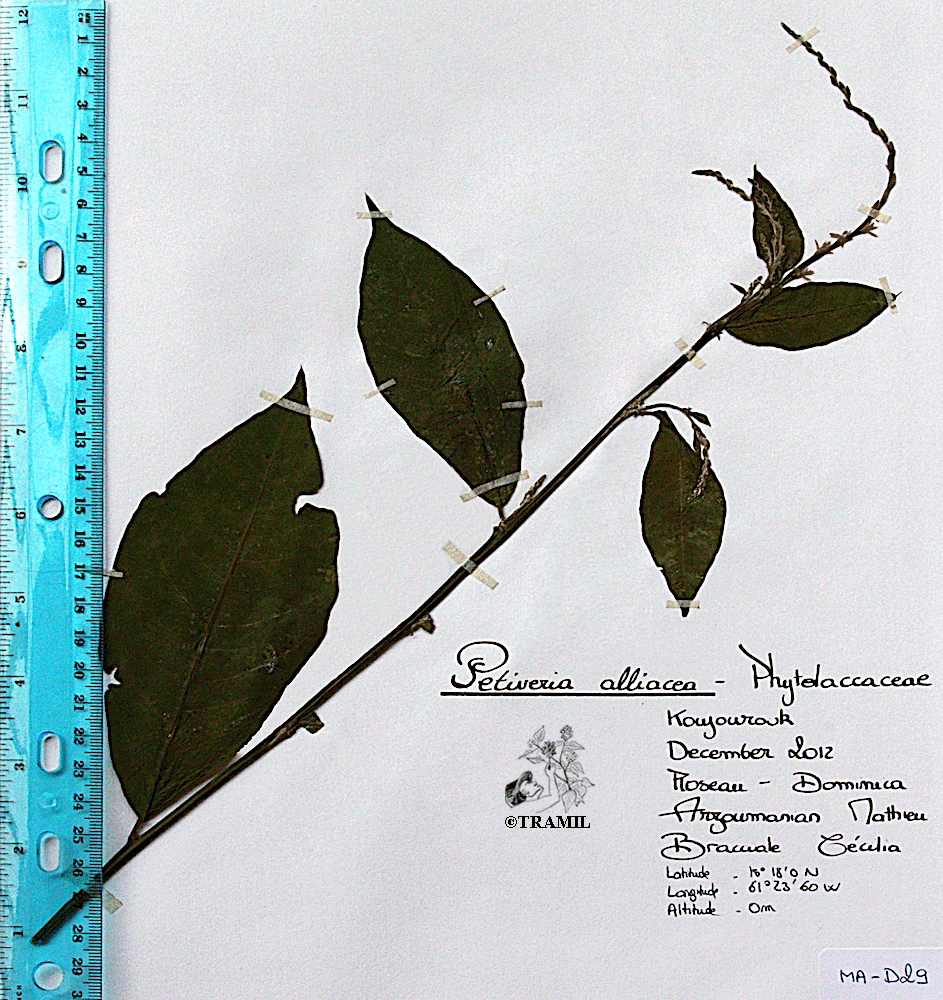 12
11
10
9
8
7
6
5
4
3
2
1
1
2
3
4
5
6
7
8
9
10
11
12
13
14
15
16
17
18
19
20
21
22
23
24
25
26
28
29
Petiveria alliacea - Phytolaccaceae
Koujourouk
December 2012
Roseau - Dominica
Arzoumanian Mathieu
Cécilia
©TRAMIL
Latitude - 15° 18'0 N
Longitude - 61° 23' 60 W
Altitude - 0m
MA-D29